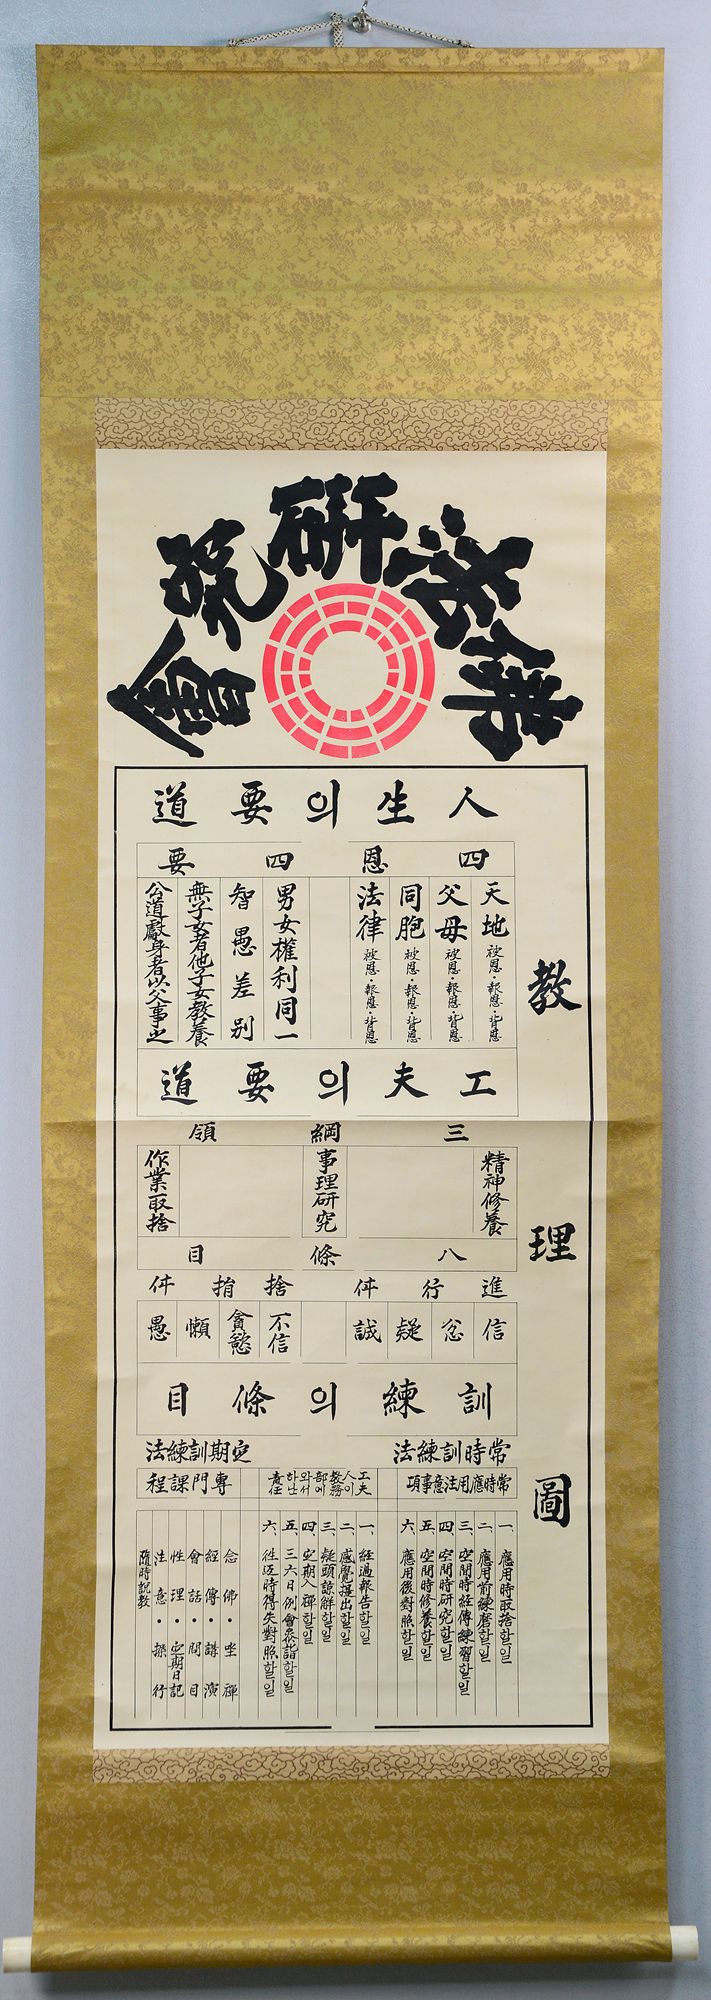 佛法研究會
敎理圖
人生의要道
四恩
天地 被恩·報恩·背恩
父母 被恩·報恩·背恩
同胞 被恩·報恩·背恩
法律 被恩·報恩·背恩
四要
男女權利同一
智愚差別
無子女者他子女敎養
公道獻身者以父事之
工夫의要道
三綱領
精神修養
事理研究
作業取捨
八條目
進行件
信
忿
疑
誠
捨捐件
不信
貪慾
懶
愚
訓練의條目
常時訓練法
常時應用注意事項
一、應用時取捨할일
二、應用前練磨할일
三、空間時經傳練習할일
四、空間時研究할일
五、空間時修養할일
六、應用後對照할일
工夫人이敎務部에와서하난責任
一、經過報告할일
二、感覺提出할일
三、疑頭諒解할일
四、定期入禪할일
五、三六日例會參詣할일
六、往返時得失對照할일
定期訓練法
專門課程
念佛·坐禪
經傳·講演
會話·問目
性理·定期日記
注意·操行
隨時說敎